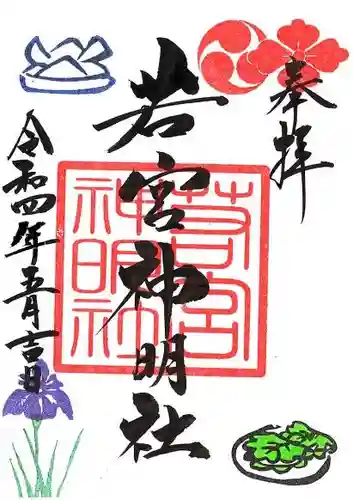 奉拝
若宮神明社
若宮
神明社
令和四年五月吉日